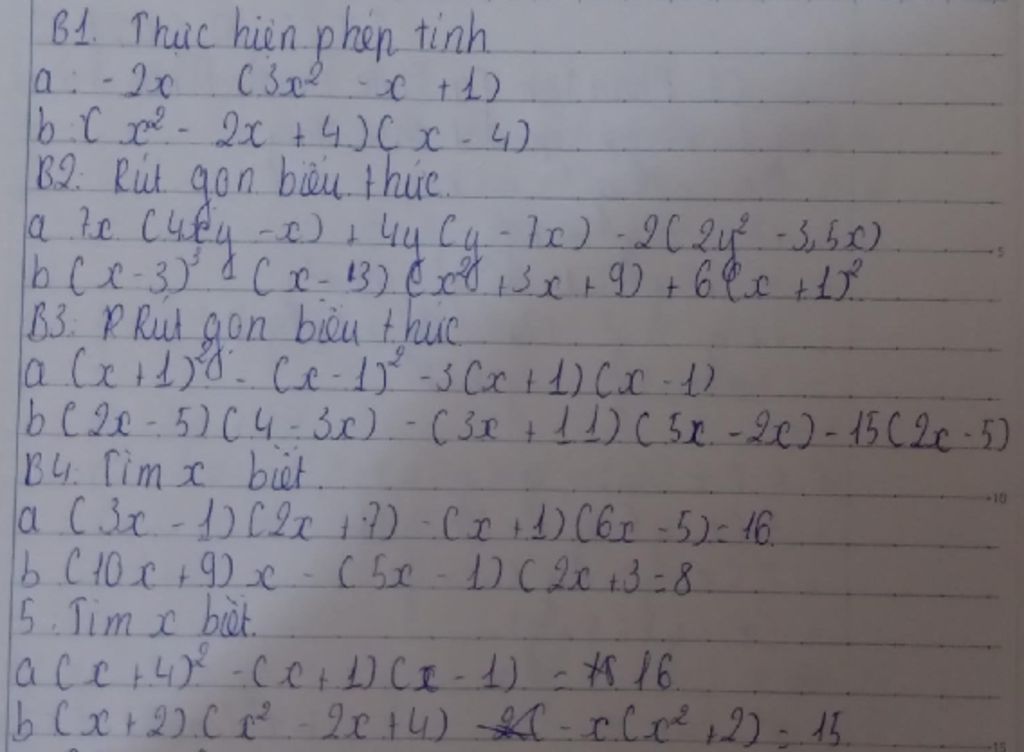 B1. Thực hiện phép tính
a: -2x (3x² - x + 1)
b: (x² - 2x + 4)(x - 4)
B2: Rút gọn biểu thức.
a 7x (4y - x) + 4y (y - 7x) - 2(2y² - 3,5x)
b (x - 3)³ - (x - 3)(x² + 3x + 9) + 6(x + 1)²
B3: Rút gọn biểu thức
a (x + 1)² - (x - 1)² - 3(x + 1)(x - 1)
b (2x - 5)(4 - 3x) - (3x + 11)(5x - 2x) - 15(2x - 5)
B4: Tìm x biết.
a (3x - 1)(2x + 7) - (x + 1)(6x - 5) = 16
b (10x + 9)x - (5x - 1)(2x + 3 = 8
5. Tìm x biết.
a (x + 4)² - (x + 1)(x - 1) = 16
b (x + 2)(x² - 2x + 4) - x(x² + 2) = 15